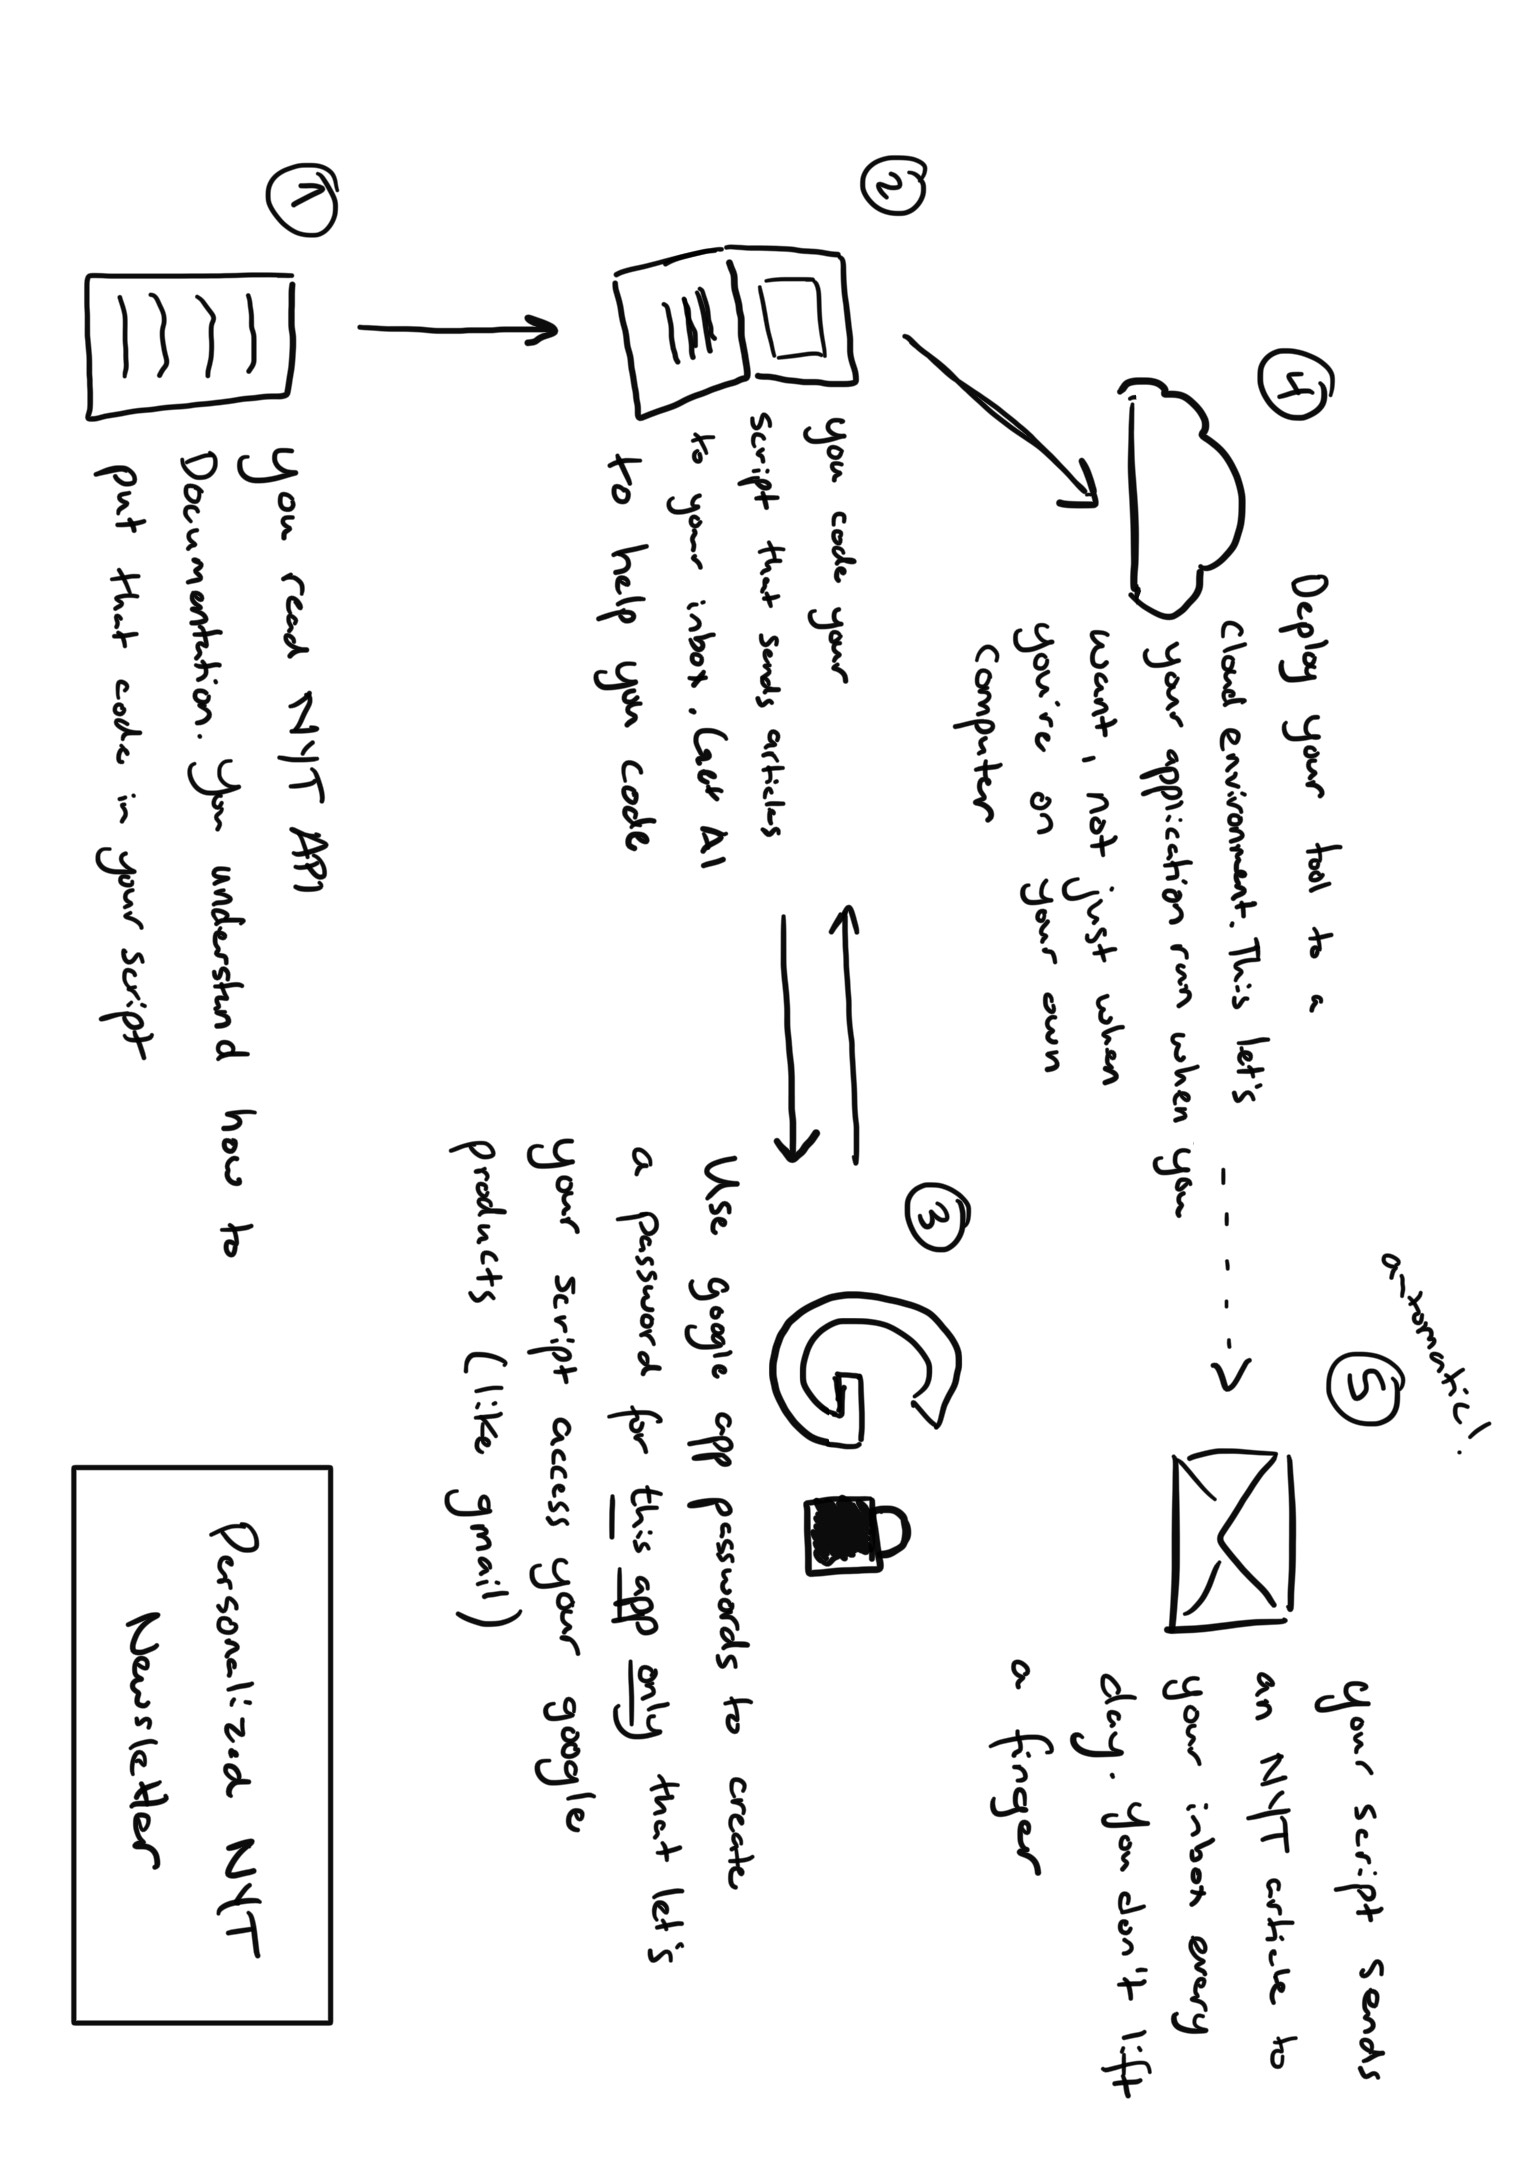 1
You read NYT API
Documentation. You understand how to
put that code in your script
2
you code your
script that sends articles
to your inbox. Get AI
to help you code
3
Use google app passwords to create
a password for this app only that let's
your script access your google
products (like gmail)
4
Deploy your tool to a
cloud environment. This let's
your application run when you
want, not just when
you're on your own
computer
automatic!
5
your script sends
an NYT article to
your inbox every
day. You don't lift
a finger
Personalized NYT
Newsletter